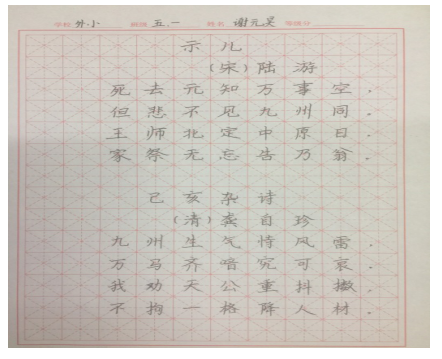 学校 外.小 班级 五.一 姓名 谢元昊 等级分
示儿
（宋）陆游
死去元知万事空，
但悲不见九州同。
王师北定中原日，
家祭无忘告乃翁。
己亥杂诗
（清）龚自珍
九州生气恃风雷，
万马齐喑究可哀。
我劝天公重抖擞，
不拘一格降人材。